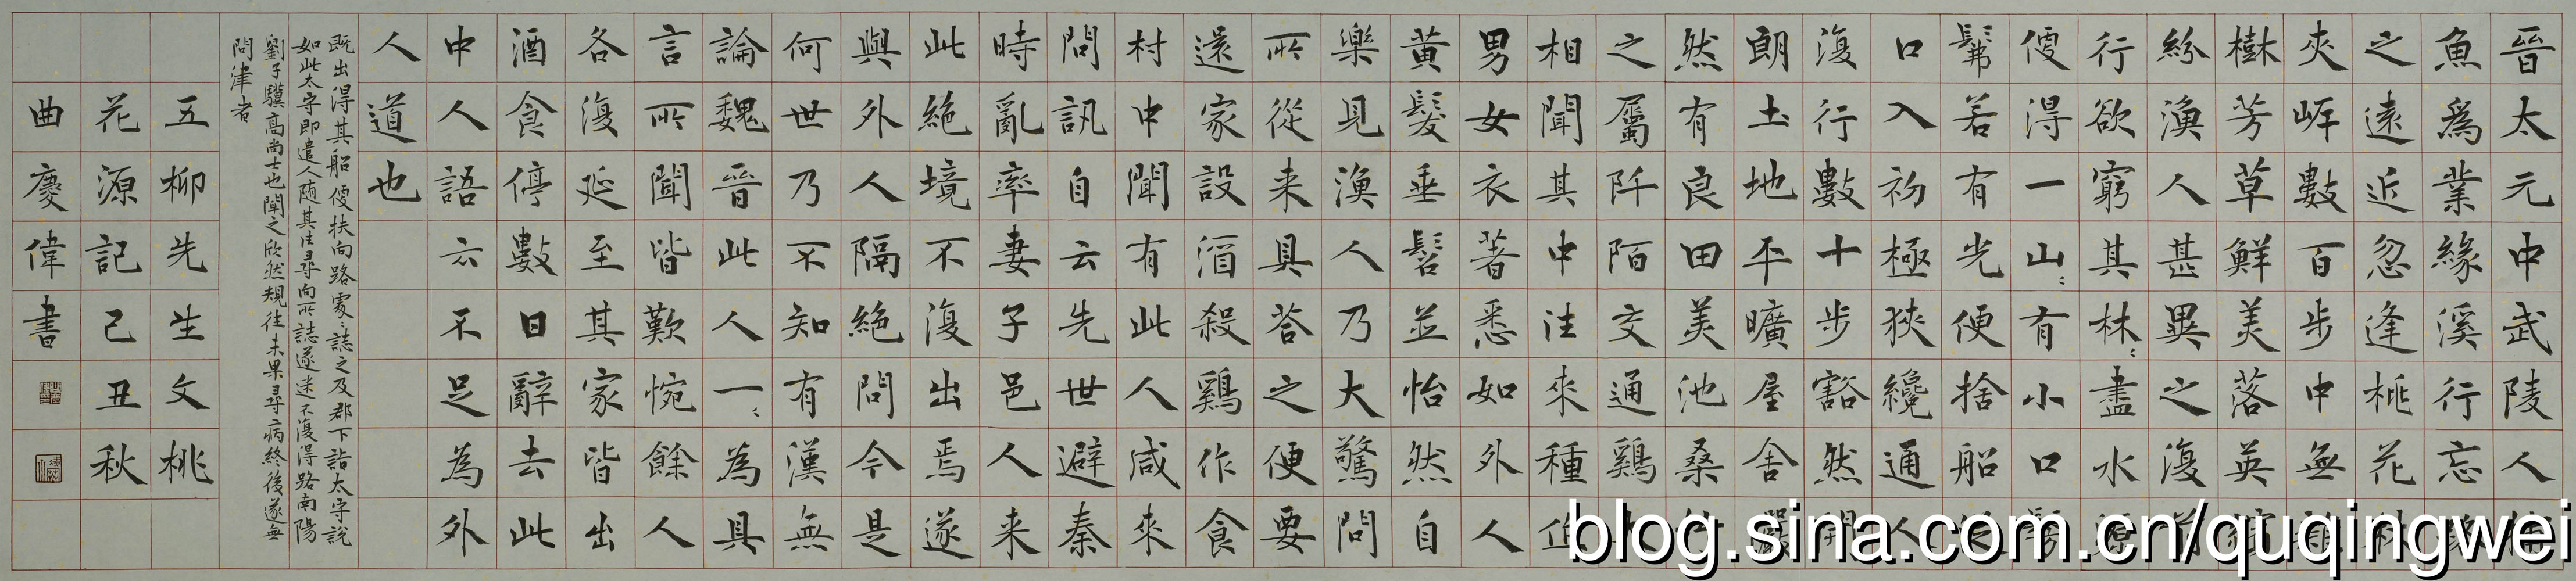 晉太元中武陵人捕
魚爲業緣溪行忘路
之遠近忽逢桃花林
夾岸數百步中無雜
樹芳草鮮美落英繽
紛漁人甚異之復前
行欲窮其林〻盡水源
便得一山〻有小口髣
髴若有光便捨船從
口入初極狹纔通人
復行數十步豁然開
朗土地平曠屋舍嚴
然有良田美池桑竹
之屬阡陌交通鷄犬
相聞其中往來種作
男女衣著悉如外人
黃髮垂髫並怡然自
樂見漁人乃大驚問
所從来具荅之便要
還家設酒殺鷄作食
村中聞有此人咸來
問訊自云先世避秦
時亂率妻子邑人来
此絕境不復出焉遂
與外人隔絕問今是
何世乃不知有漢無
論魏晉此人一〻為具
言所聞皆歎惋餘人
各復延至其家皆出
酒食停數日辭去此
中人語云不足為外
人道也
既出得其船便扶向路處〻誌之及郡下詣太守說
如此太守即遣人随其往尋向所誌遂迷不復得路南陽
劉子驥高尚士也聞之欣然規往未果尋病終後遂無
問津者
五柳先生文桃
花源記己丑秋
曲慶偉書
blog.sina.com.cn/quqingwei